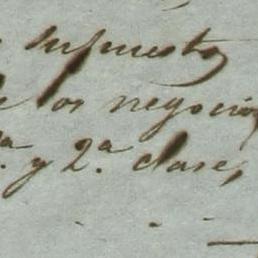 supuesto
de los negocios
1ª. y 2ª. clase,